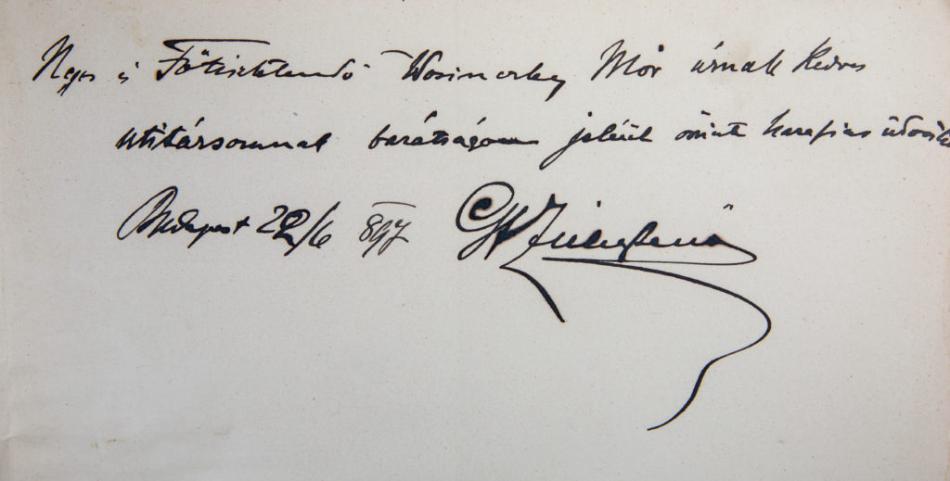 Ngs és Főtisztelendő Wosinszky Mór úrnak kedves
utitársomnak barátságom jeléül őszinte hazafias üdv
Budapest 22/6 897 Gr Zichy Jenő